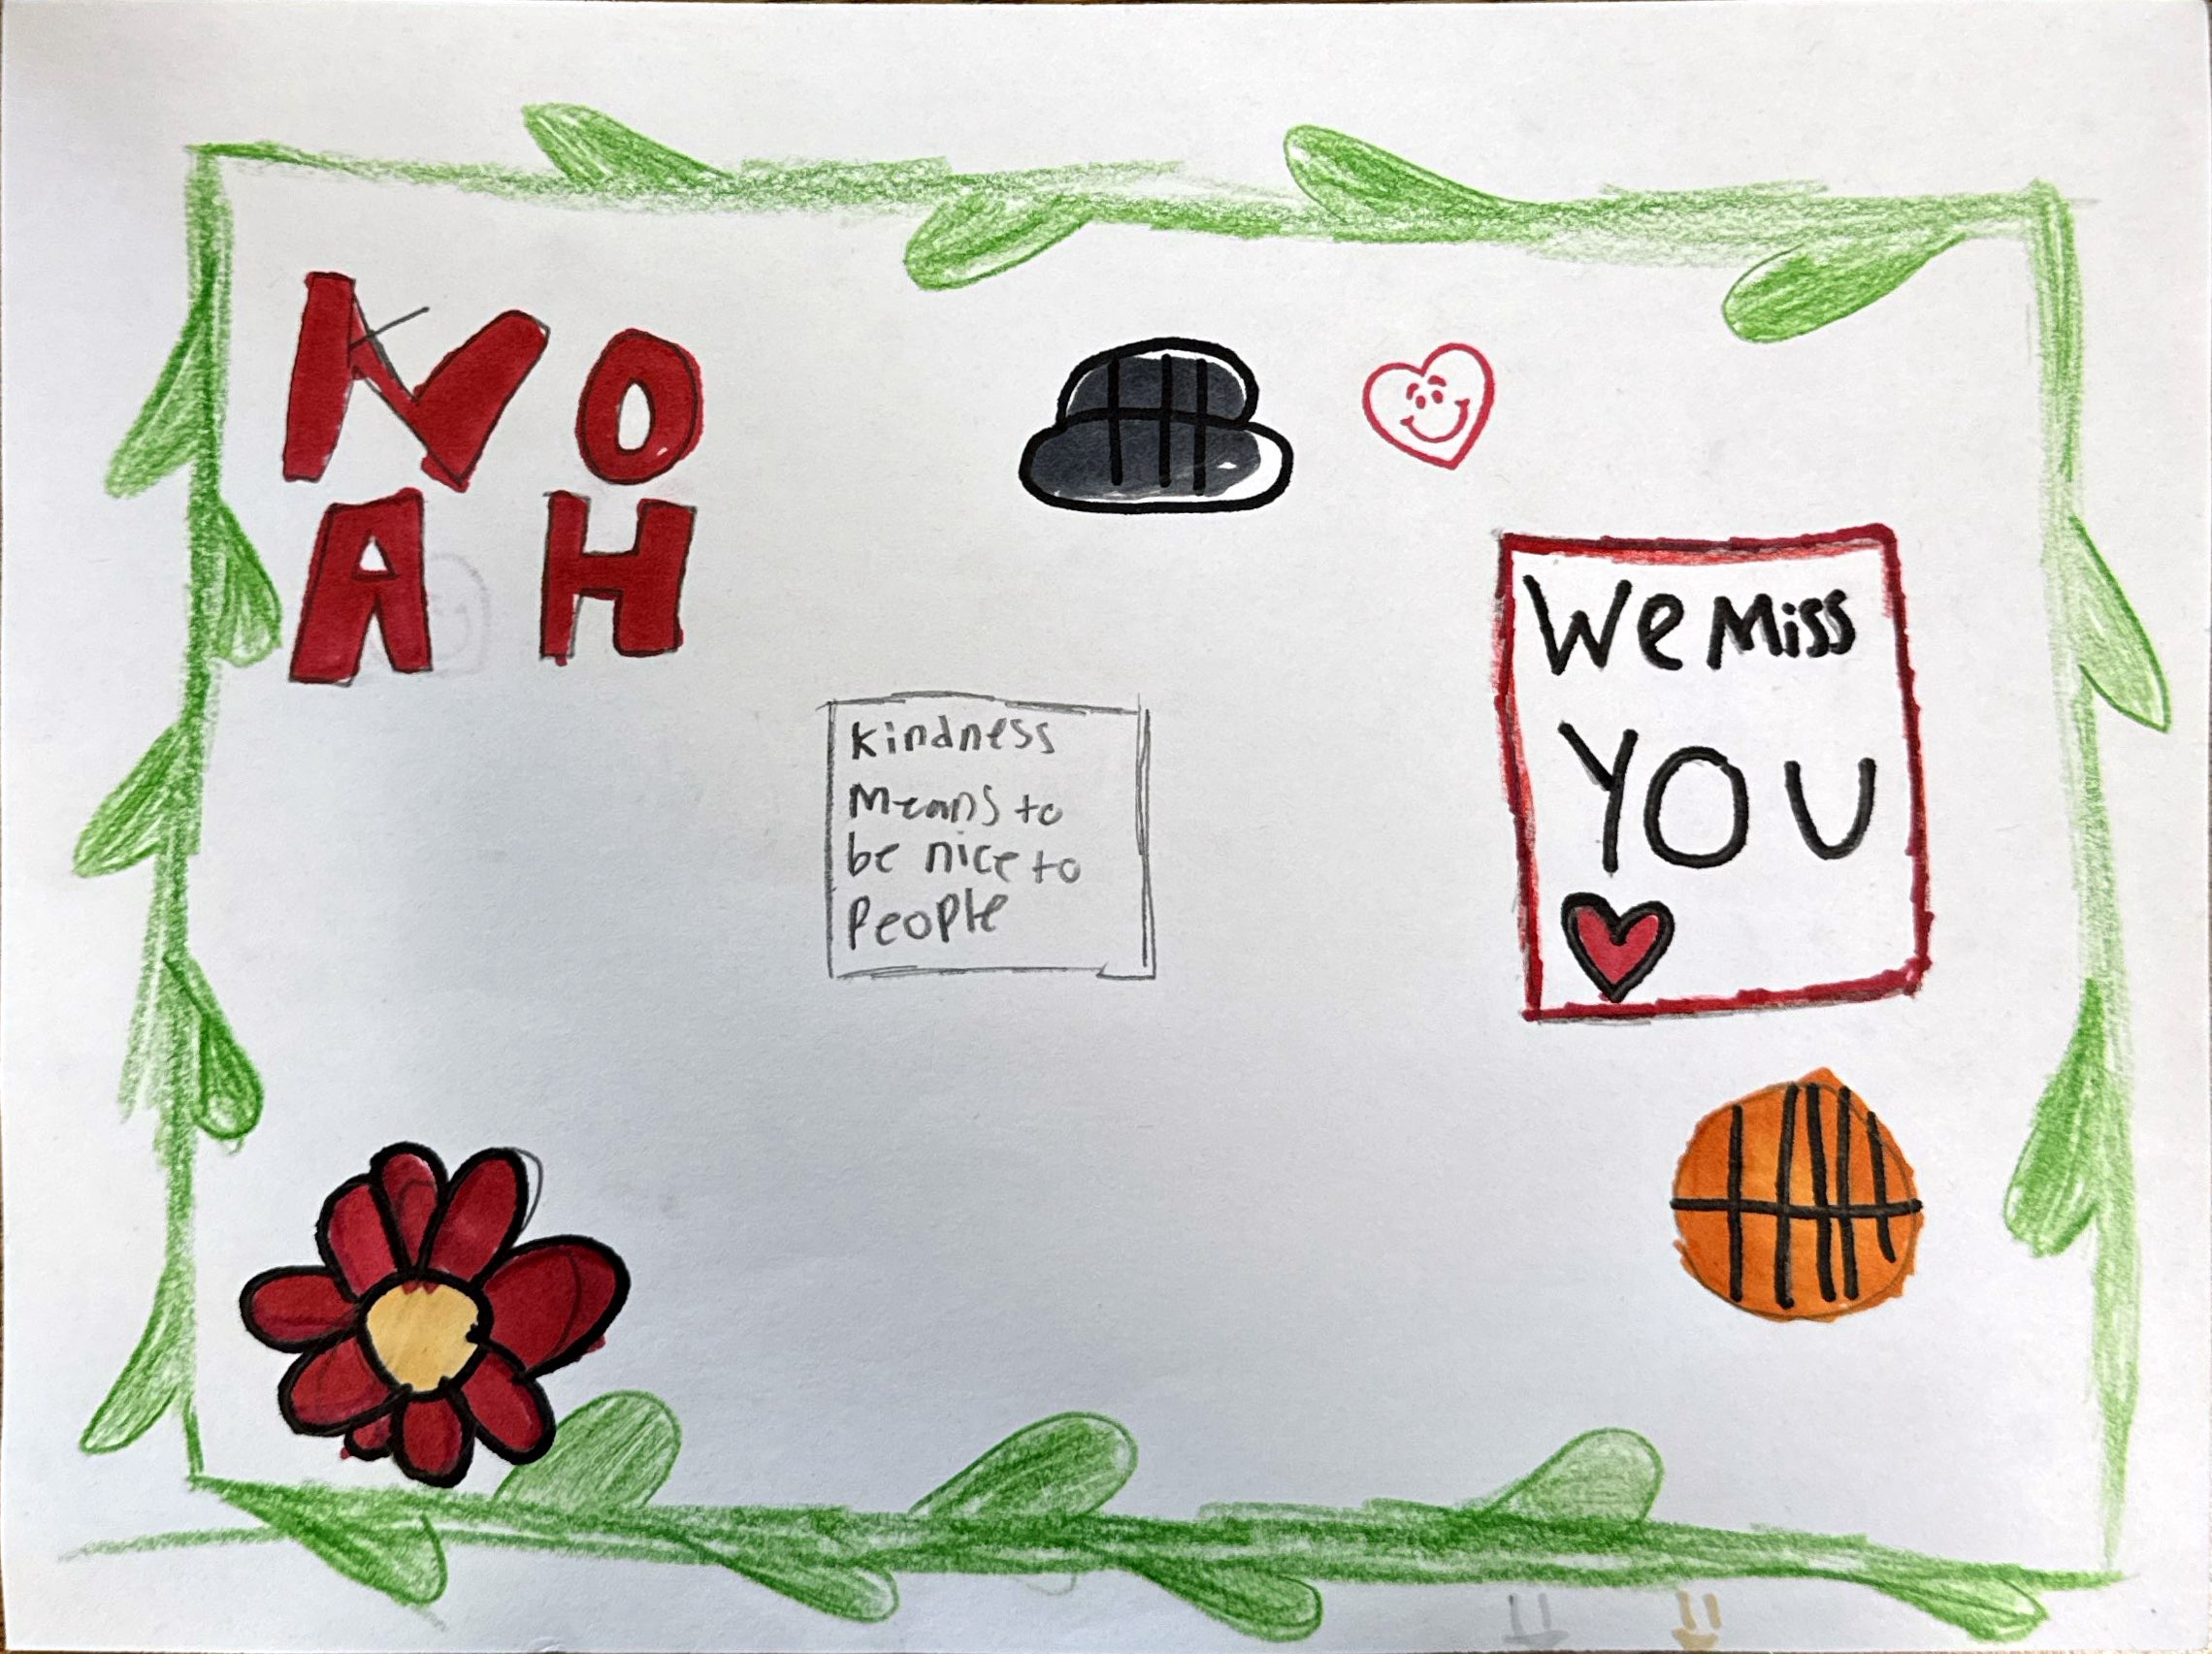 NO
AH
We Miss
YOU
Kindness
Means to
be nice to
People